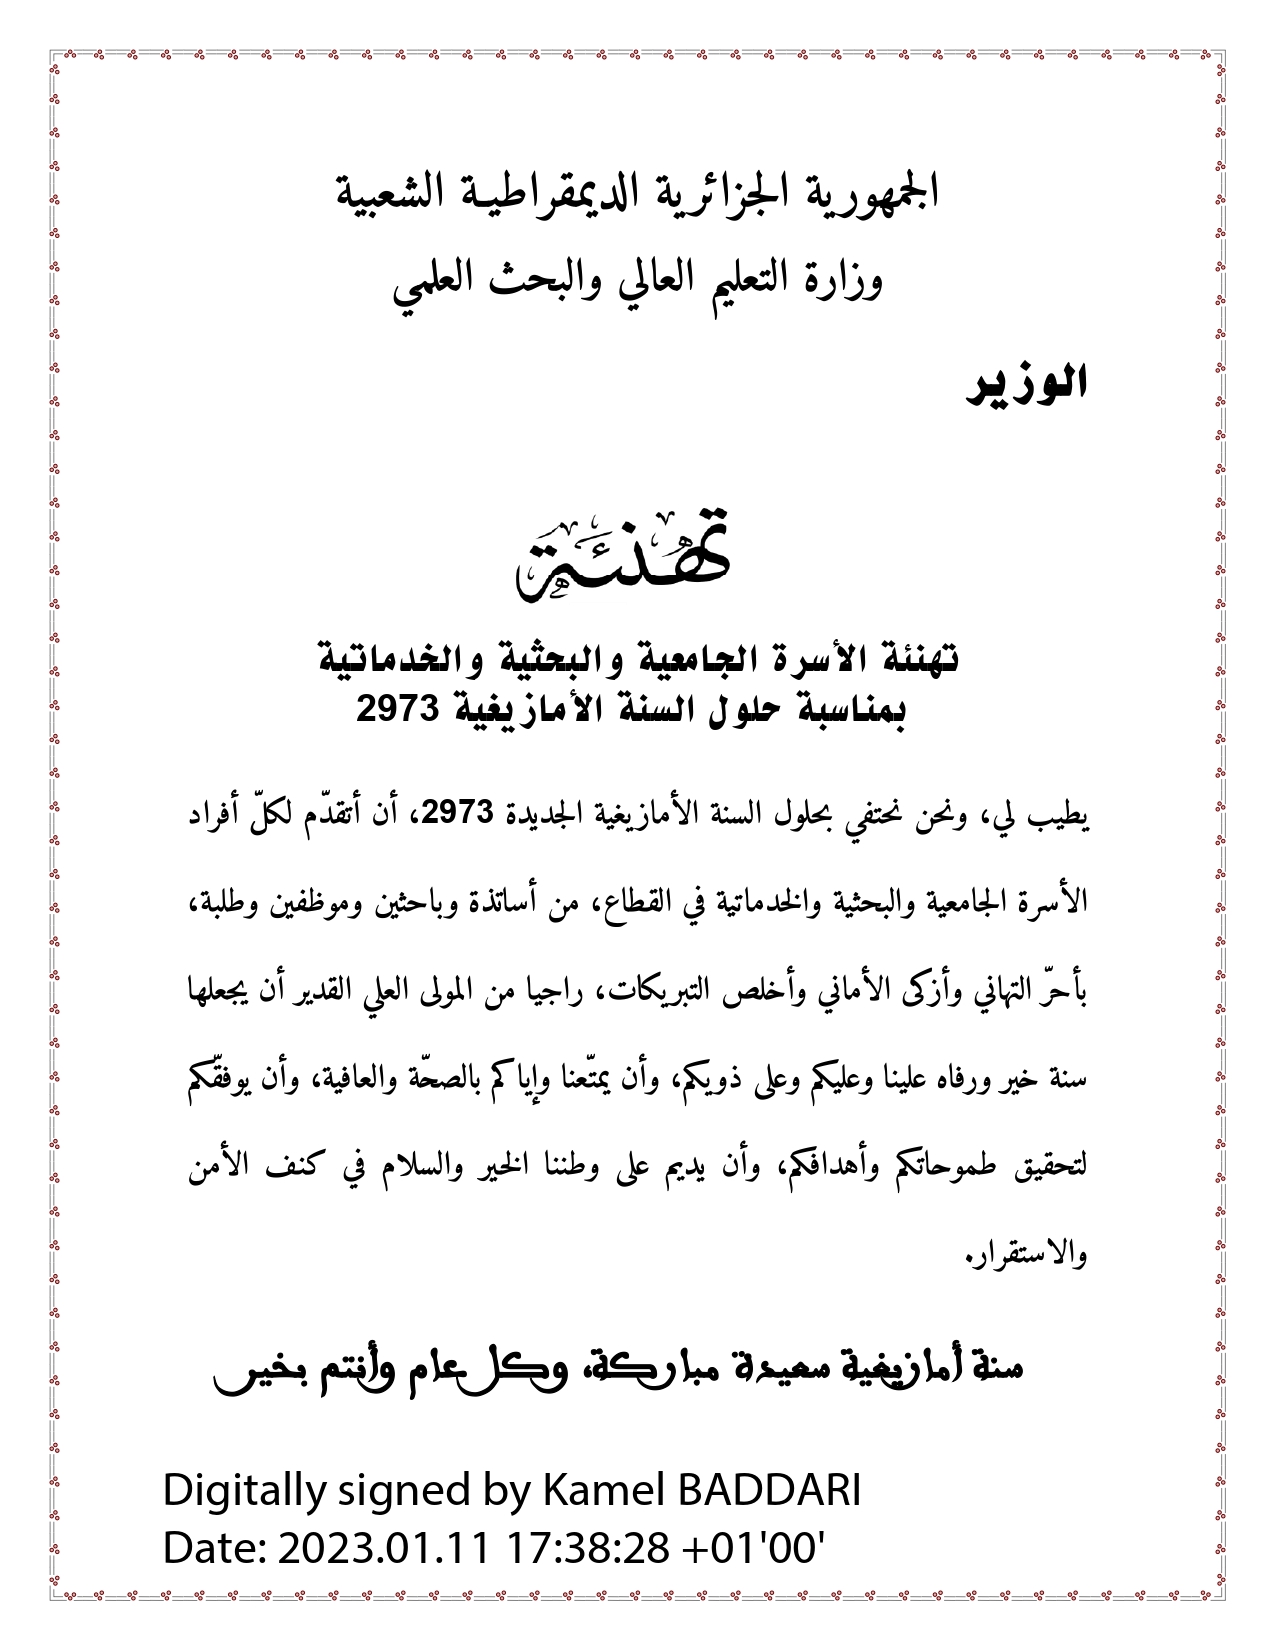 الجمهورية الجزائرية الديمقراطيـة الشعبية
وزارة التعليم العالي والبحث العلمي
الوزير
تهنئة
تهنئة الأسرة الجامعية والبحثية والخدماتية
بمناسبة حلول السنة الأمازيغية 2973
يطيب لي، ونحن نحتفي بحلول السنة الأمازيغية الجديدة 2973، أن أتقدّم لكلّ أفراد
الأسرة الجامعية والبحثية والخدماتية في القطاع، من أساتذة وباحثين وموظفين وطلبة،
بأحرّ التهاني وأزكى الأماني وأخلص التبريكات، راجيا من المولى العلي القدير أن يجعلها
سنة خير ورفاه علينا وعليكم وعلى ذويكم، وأن يمتّعنا وإياكم بالصحّة والعافية، وأن يوفقّكم
لتحقيق طموحاتكم وأهدافكم، وأن يديم على وطننا الخير والسلام في كنف الأمن
والاستقرار.
سنة أمازيغية سعيدة مباركة، وكل عام وأنتم بخير
Digitally signed by Kamel BADDARI
Date: 2023.01.11 17:38:28 +01'00'